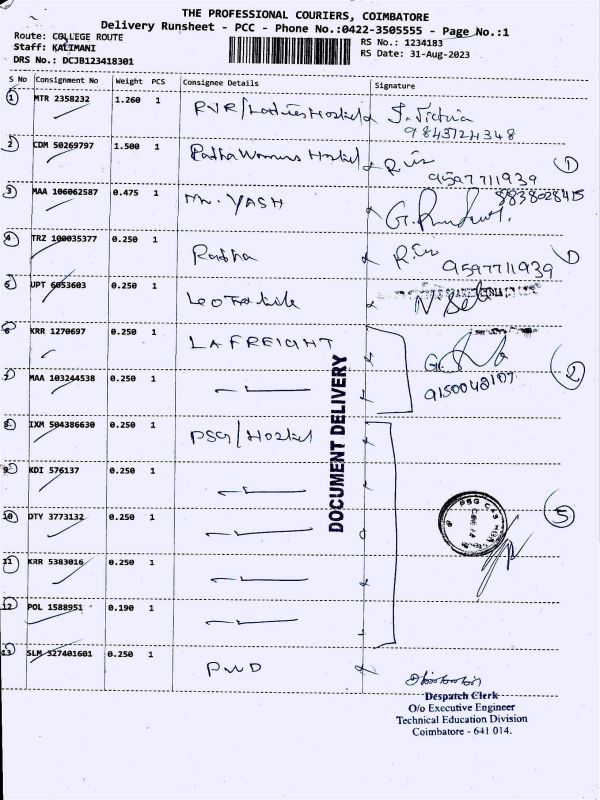 THE PROFESSIONAL COURIERS, COIMBATORE
Delivery Runsheet - PCC - Phone No.:0422-3505555 - Page No.:1
Route: COLLEGE ROUTE
RS No.: 1234183
Staff: KALIMANI
RS Date: 31-Aug-2023
DRS No.: DCJB123418301
S No Consignment No Weight PCS Consignee Details Signature
1 MTR 2358232 1.260 1 RVR/Ladies Hostel J. Victria
9843724348
2 CDM 50269797 1.500 1 Radha Womens Hostel 1
9597711939
3 MAA 106062587 0.475 1 Mr. YASH 8838028415
4 TRZ 100035377 0.250 1 Radha 1
9597711939
5 UPT 6053603 0.250 1 Leo N Sel
6 KRR 1270697 0.250 1 LA FREIGHT
7 MAA 103244538 0.250 1 9150048107 2
8 IXM 504386630 0.250 1 PSG/Hostel
9 KDI 576137 0.250 1
10 DTY 3773132 0.250 1 PSG CAS 5
11 KRR 5383016 0.250 1
12 POL 1588951 0.190 1
13 SLM 327401601 0.250 1 PWD
DOCUMENT DELIVERY
Despatch Clerk
O/o Executive Engineer
Technical Education Division
Coimbatore - 641 014.